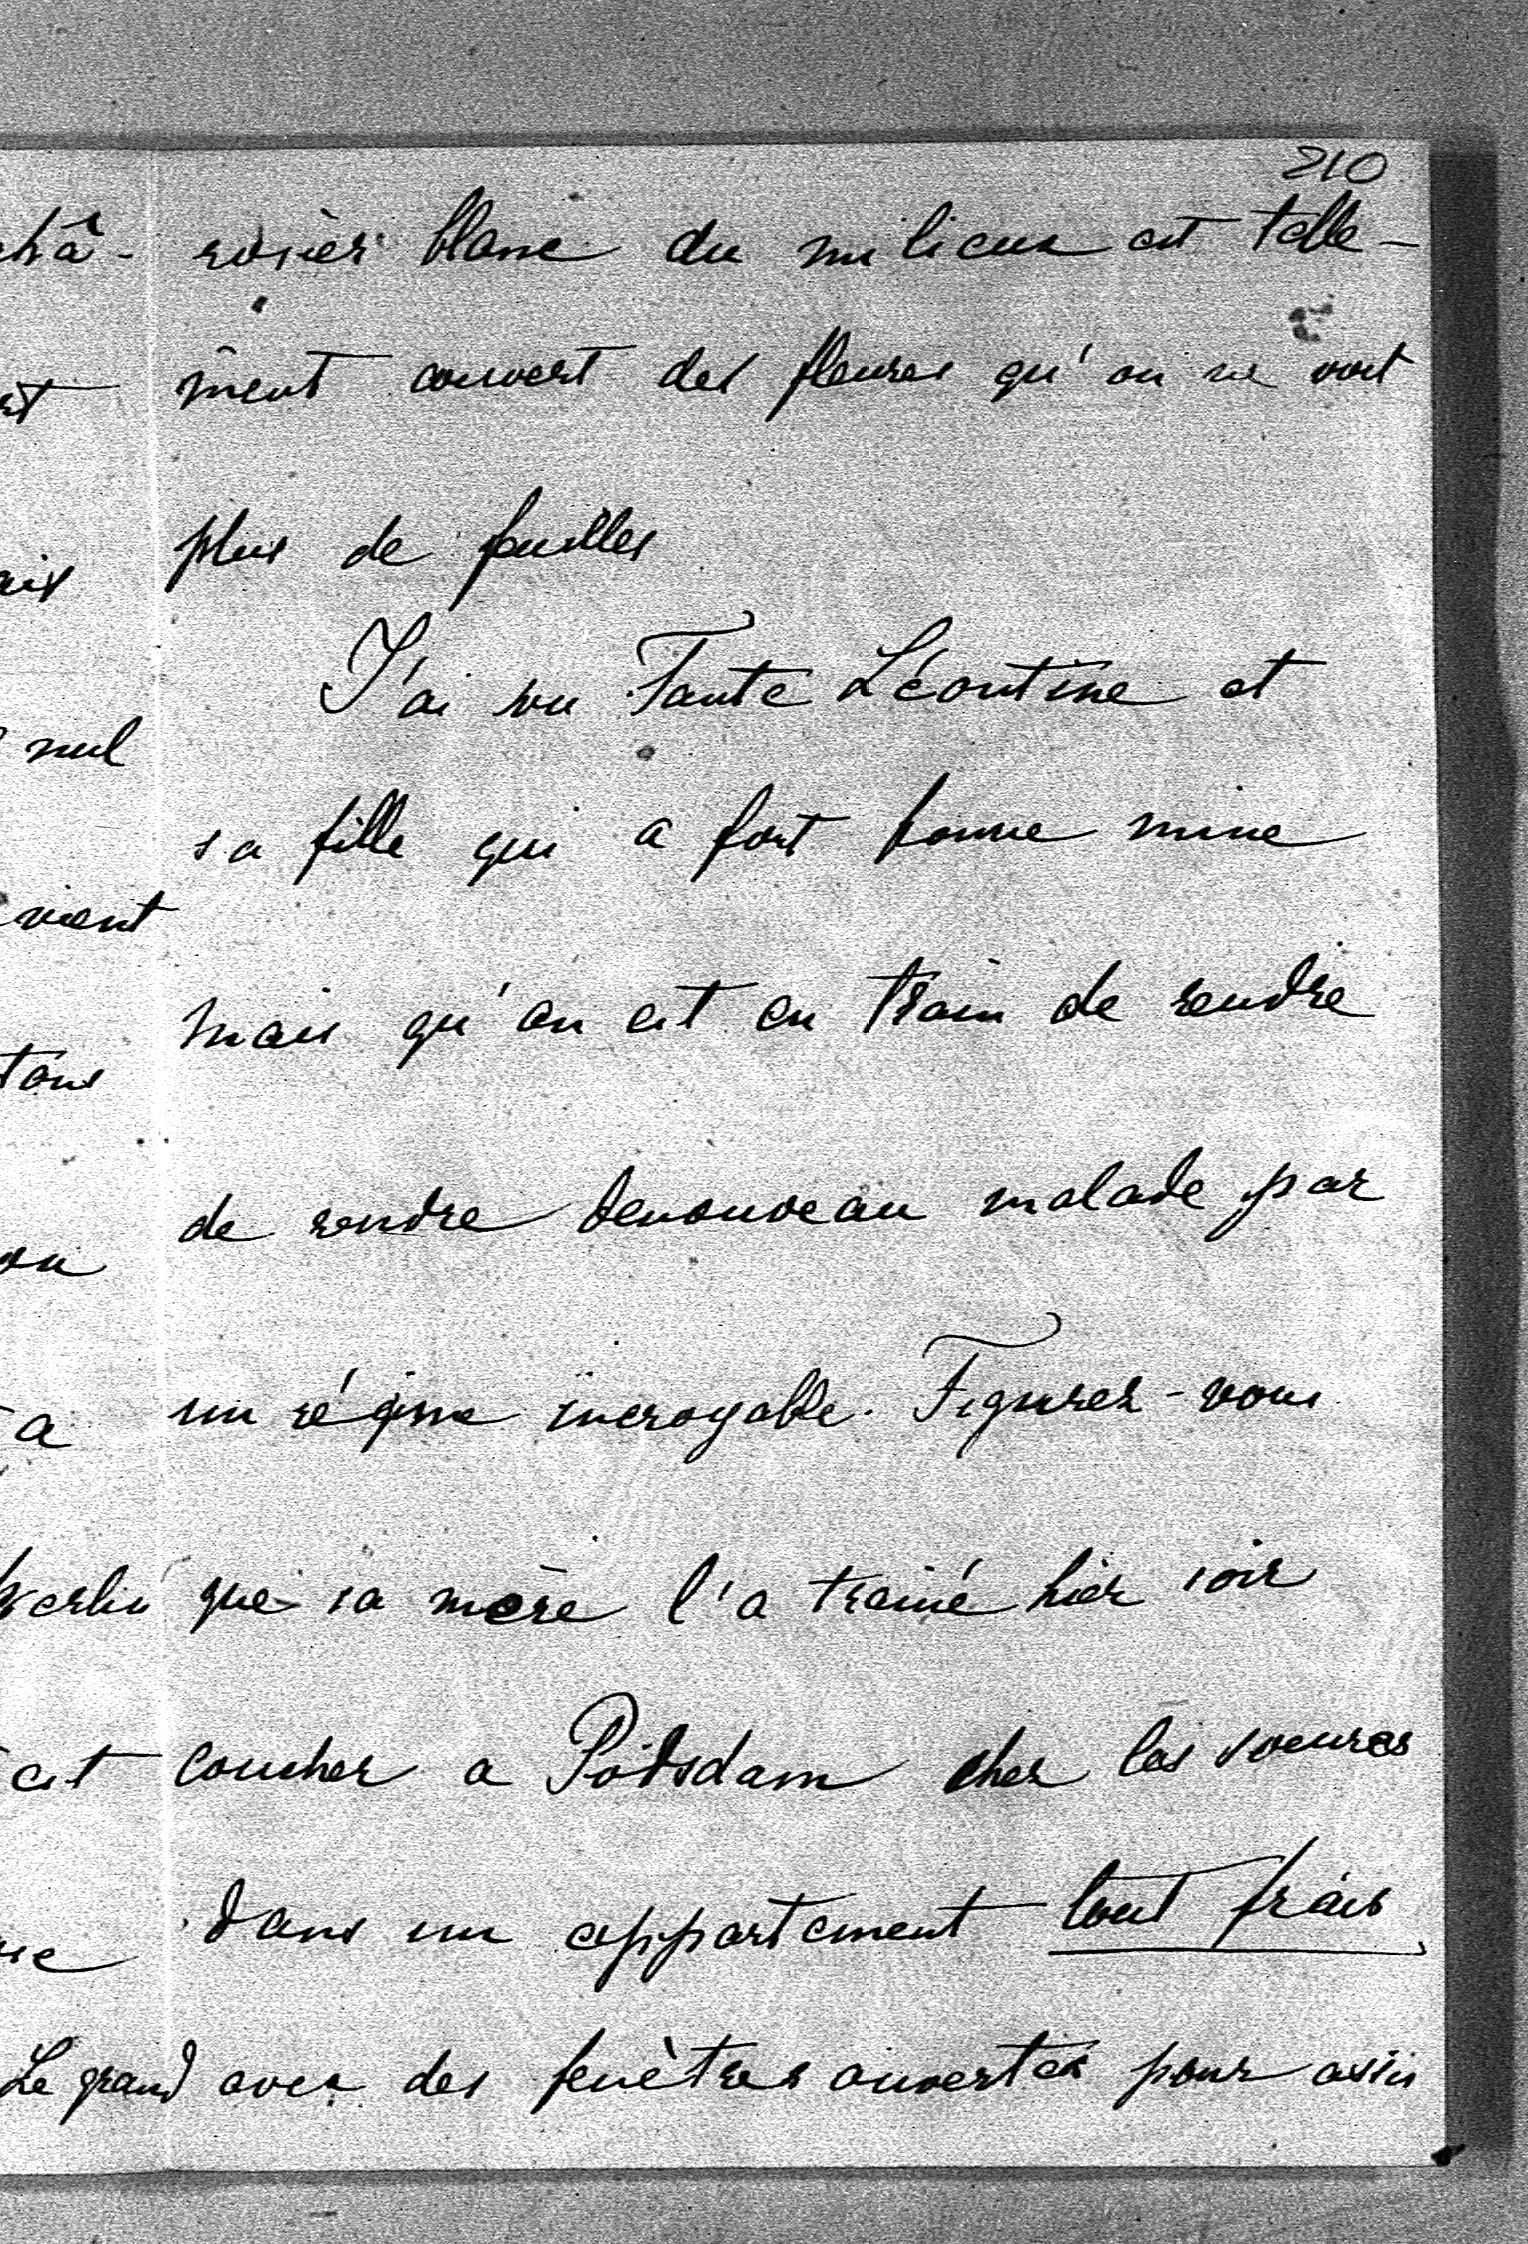 210
rosier blanc du milieux est telle-
ment couvert des fleures qu'on ne voit
plus de feuilles
J'ai vu Tante Léontine et
sa fille qui a fort bonne mine
mais qu'on est en train de rendre
de rendre denouveau malade par
un régime incroyable. Figurez-vous
que sa mère l'a trainé hier soir
coucher a Potsdam chez les soeures
dans un appartement tout frais
avec des fenètres ouvertes pour
châ-
nul
vient
tous
a
est
Le grand